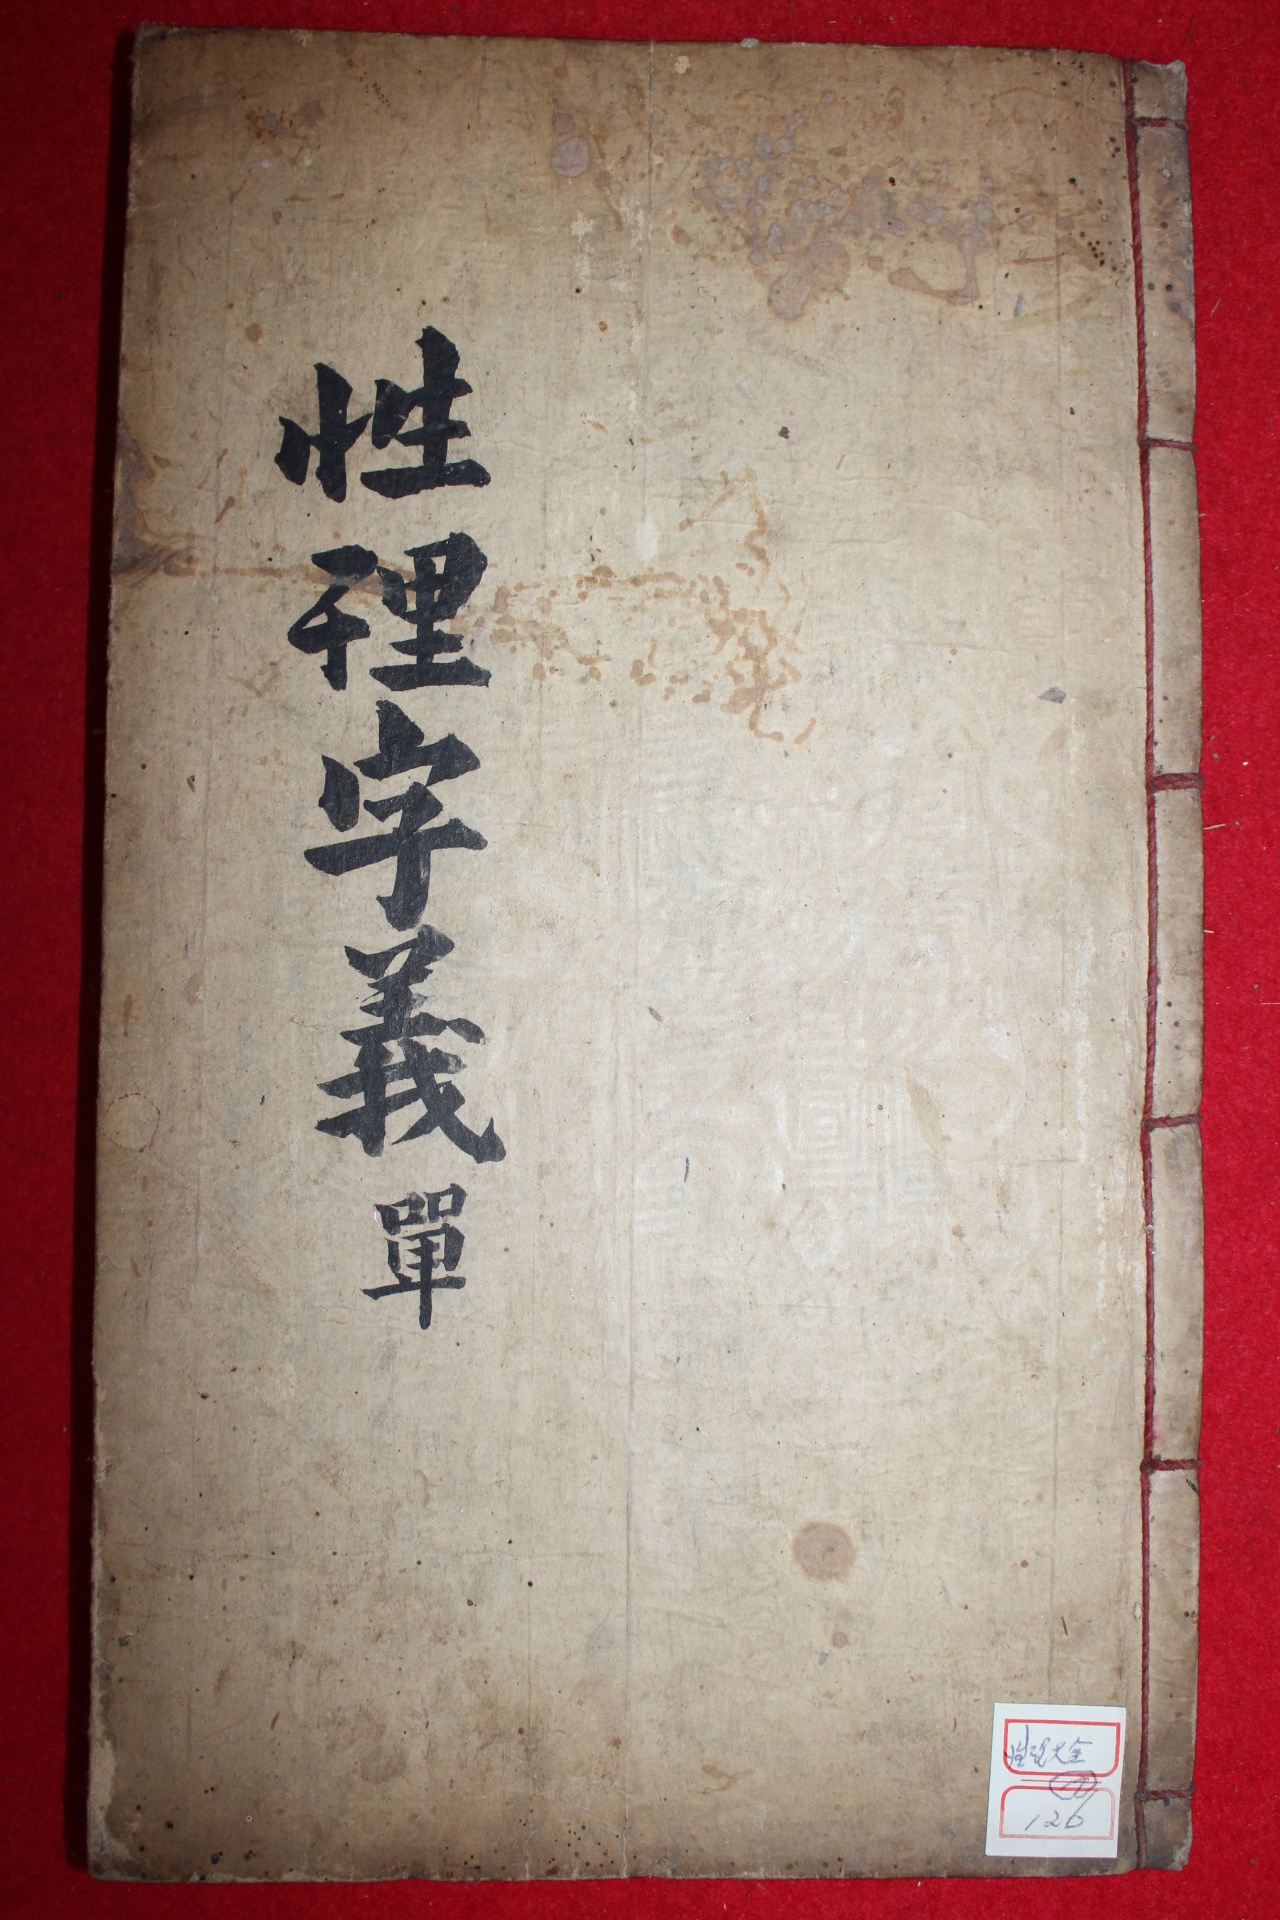 性理字義單
性理大全
126